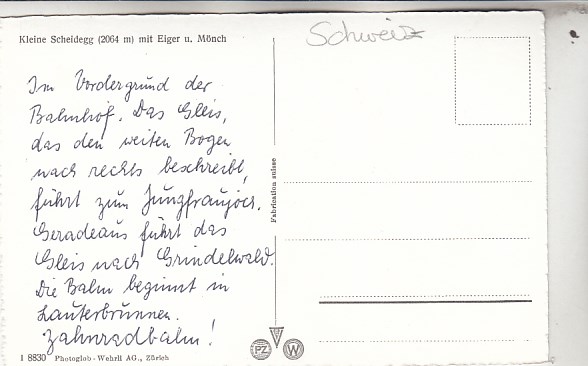 Kleine Scheidegg (2064 m) mit Eiger u. Mönch
Schweiz
Im Vordergrund der
Bahnhof. Das Gleis,
das den weiten Bogen
nach rechts beschreibt,
führt zum Jungfraujoch.
Geradeaus führt das
Gleis nach Grindelwald.
Die Bahn beginnt in
Lauterbrunnen.
Zahnradbahn!
Fabrication suisse
PZ
W
I 8830 Photoglob-Wehrli AG., Zürich